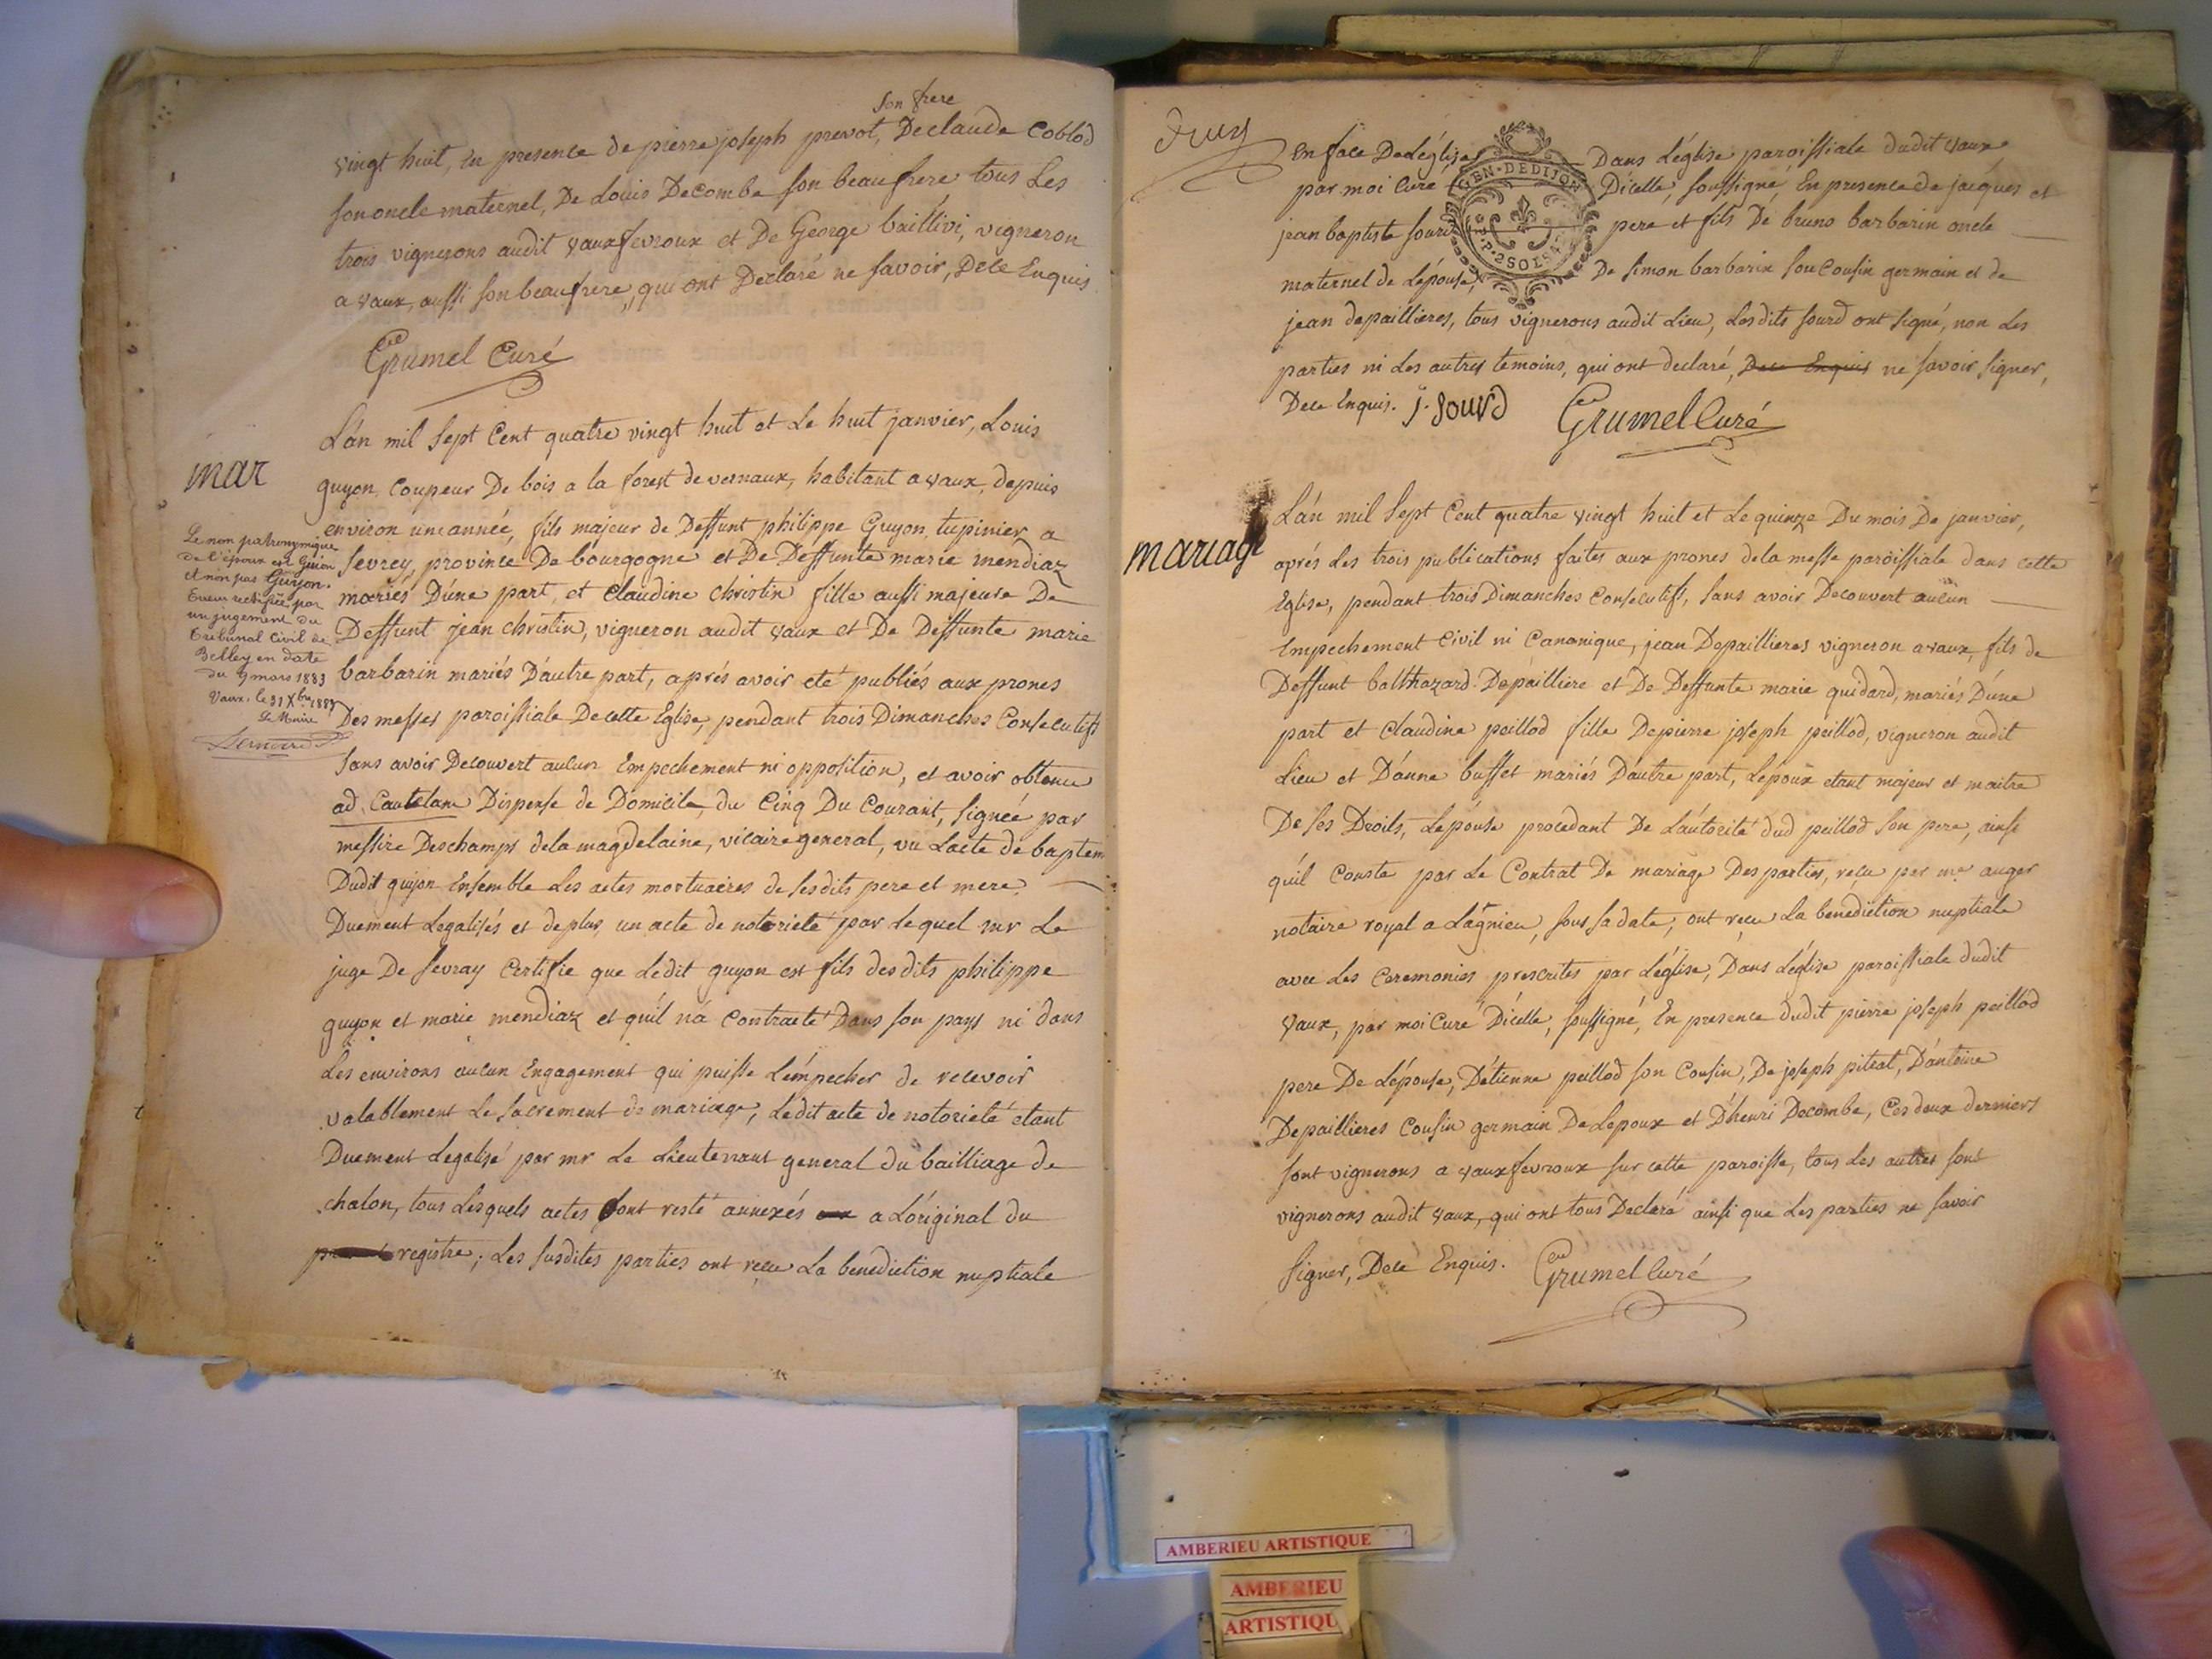 son frere
vingt huit, en presence de pierre joseph prevot, De claude Coblod
son oncle maternel, De Louis Decombe son beaufrere tous Les
trois vignerons audit vauxfevroux et De George baillivi, vigneron
a vaux, aussi son beaufrere, qui ont Declaré ne savoir, Dece Enquis
Grumel Curé
mar
L'an mil sept Cent quatre vingt huit et Le huit janvier, Louis
guyon, Coupeur De bois a la forest de vernaux, habitant a vaux, depuis
environ une année, fils majeur de Deffunt philippe Guyon, tupinier a
sevrey, province De bourgogne et De Deffunte marie mendiaz
mariés D'une part, et Claudine Christin fille aussi majeure De
Deffunt jean christin, vigneron audit vaux et De Deffunte marie
barbarin mariés D'autre part, aprés avoir eté publiés aux prones
Des messes paroissiale De cette Eglise, pendant trois Dimanches Consecutifs
sans avoir Decouvert aucun Empechement ni opposition, et avoir obtenu
ad Cautelam Dispense de Domicile, du Cinq Du Courant, signée par
messire Deschamps dela magdelaine, vicaire general, vu L'acte de baptem
Dudit guyon Ensemble Les actes mortuaires de sesdits pere et mere
Duement Legalisés et de plus un acte de notorieté par Lequel mr Le
juge De sevray Certifie que Ledit guyon est fils desdits philippe
guyon et marie mendiaz et qu'il n'a Contracté Dans son pays ni dans
Les environs aucun Engagement qui puisse L'empecher de recevoir
valablement Le sacrement de mariage, Ledit acte de notorieté etant
Duement Legalisé par mr Le Lieutenant general du bailliage de
chalon, tous Lesquels actes sont resté annexés a L'original du
registre; Les susdites parties ont reçu La benediction nuptiale
Le nom patronymique
de l'époux est Guion
et non pas Guyon.
Erreur rectifiée par
un jugement du
Tribunal Civil de
Belley en date
du 9 mars 1883
Vaux, le 31 Xbre 1883
Le Maire
en face De L'église Dans L'église paroissiale dudit vaux
par moi Curé D'icelle, soussigné, En presence de jacques et
jean baptiste sourd pere et fils De bruno barbarin oncle
maternel de L'epouse, De simon barbarin son Cousin germain et de
jean depaillieres, tous vignerons audit Lieu, Lesdits sourd ont signé, non Les
parties ni Les autres temoins, qui ont declaré, Dece Enquis ne savoir signer,
Dece Enquis. j. sourd Grumel Curé
GEN · DE DIJON
mariage
L'an mil sept Cent quatre vingt huit et Le quinze Du mois De janvier,
aprés Les trois publications faites aux prones dela messe paroissiale dans cette
Eglise, pendant trois Dimanches Consecutifs, sans avoir Decouvert aucun
Empechement Civil ni Canonique, jean Depaillieres vigneron a vaux, fils de
Deffunt balthazard Depailliere et De Deffunte marie quidard, mariés D'une
part et Claudine peillod fille De pierre joseph peillod, vigneron audit
Lieu et D'anne buffet mariés D'autre part, L'epoux etant majeur et maitre
De ses Droits, L'epouse procedant De L'autorité dud peillod son pere, ainsi
qu'il Conste par Le Contrat De mariage Des parties, reçu par me auger
notaire royal a Lagnieu, sous sa date, ont reçu La benediction nuptiale
avec Les Ceremonies prescrites par L'église, Dans L'église paroissiale dudit
vaux, par moi Curé D'icelle, soussigné, En presence dudit pierre joseph peillod
pere De L'epouse, D'etienne peillod son Cousin, De joseph pitrat, D'antoine
Depaillieres Cousin germain De L'epoux et D'henri Decombe, Ces deux derniers
sont vignerons a vauxfevroux sur cette paroisse, tous Les autres sont
vignerons audit vaux, qui ont tous Declaré ainsi que Les parties ne savoir
signer, Dece Enquis. Grumel Curé
AMBERIEU ARTISTIQUE
AMBERIEU
ARTISTIQU